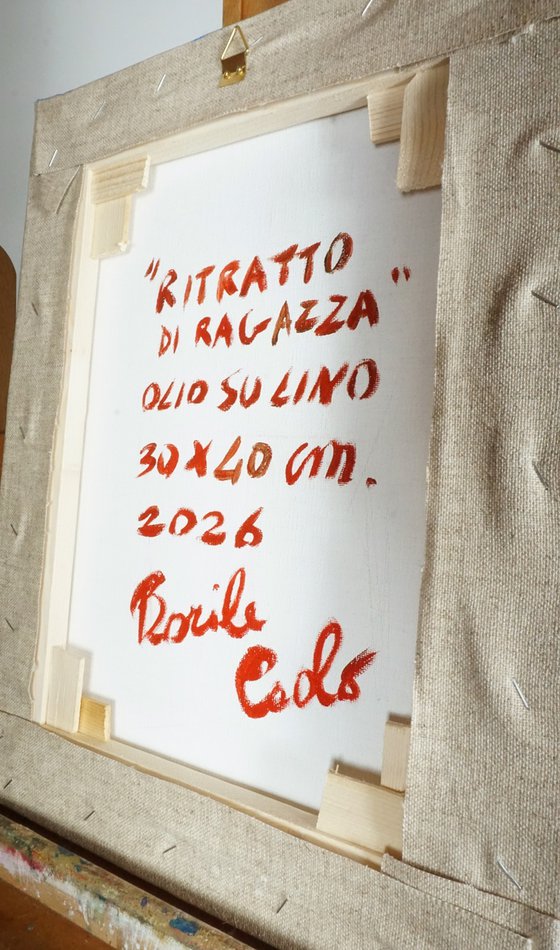 "RITRATTO
DI RAGAZZA"
OLIO SU LINO
30X40 cm.
2026
Borile
Carlo